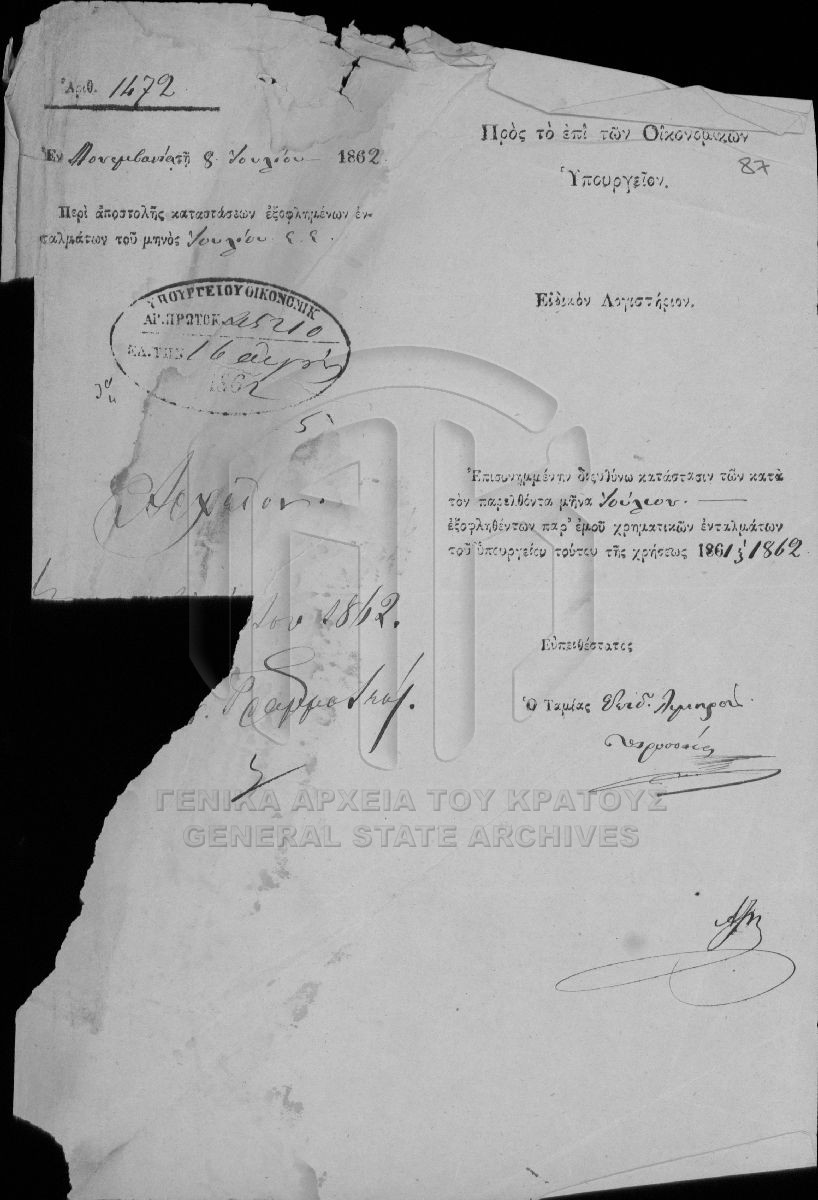 Ἀριθ. 1472
Ἐν Μονεμβασίᾳ τῇ 8 Ἰουλίου 1862
Περὶ ἀποστολῆς καταστάσεων ἐξοφλημένων ἐν-
ταλμάτων τοῦ μηνὸς Ἰουλίου ἔ.ἔ.
Πρὸς τὸ ἐπὶ τῶν Οἰκονομικῶν
Ὑπουργεῖον.
87
Εἰδικὸν Λογιστήριον.
ΥΠΟΥΡΓΕΙΟΥ ΟΙΚΟΝΟΜΙΚ
ΑΡ. ΠΡΩΤΟΚ 25210
ΕΛ. ΤΗΝ 16
1862
5
Ἀρχεῖον.
1862.
Ἐπισυνημμένην διευθύνω κατάστασιν τῶν κατὰ
τὸν παρελθόντα μῆνα Ἰούλιον
ἐξοφληθέντων παρ' ἐμοῦ χρηματικῶν ἐνταλμάτων
τοῦ ὑπουργείου τούτου τῆς χρήσεως 1861 1862
Εὐπειθέστατος
Ὁ Ταμίας Ἐπιδ. Λιμηρᾶς
ΓΕΝΙΚΑ ΑΡΧΕΙΑ ΤΟΥ ΚΡΑΤΟΥΣ
GENERAL STATE ARCHIVES